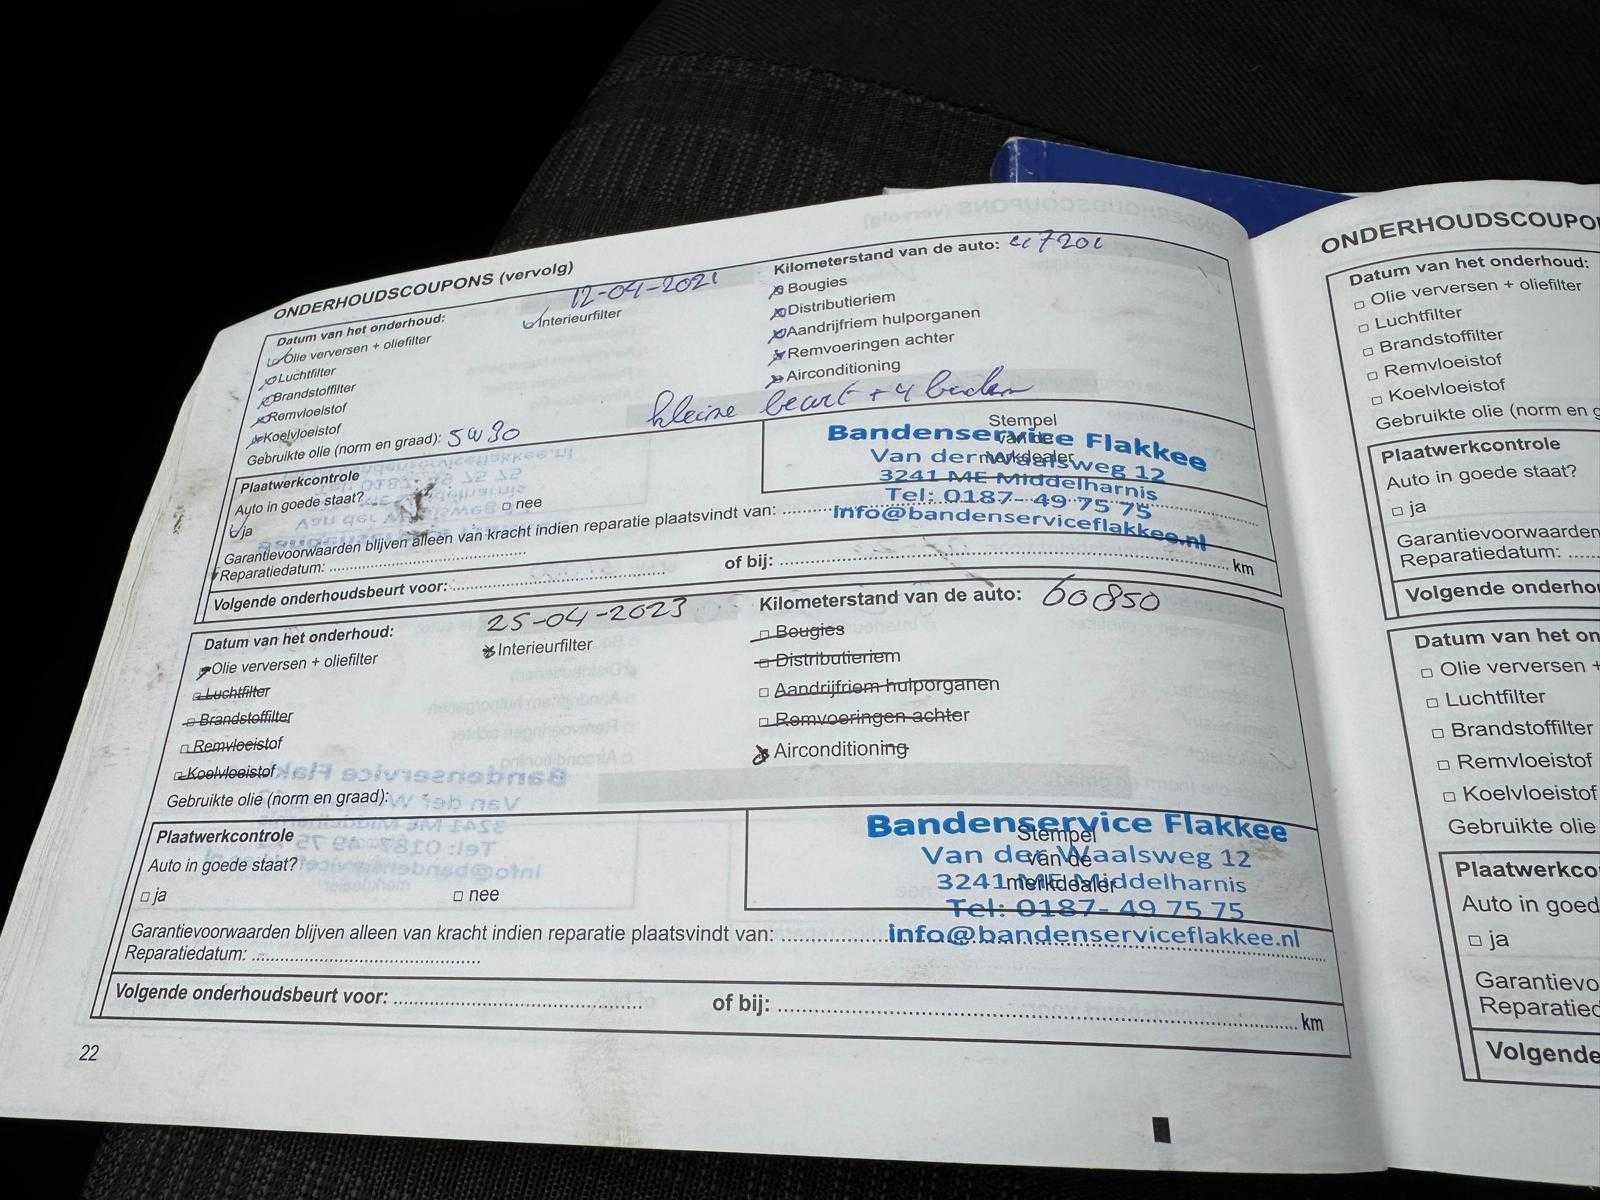 ONDERHOUDSCOUPONS (vervolg)
Datum van het onderhoud: 12-04-2021
Kilometerstand van de auto: 47201
Olie verversen + oliefilter
Interieurfilter
Bougies
Luchtfilter
Distributieriem
Brandstoffilter
Aandrijfriem hulporganen
Remvloeistof
Remvoeringen achter
Koelvloeistof
Airconditioning
Gebruikte olie (norm en graad): 5w30
kleine beurt + 4 banden
Plaatwerkcontrole
Auto in goede staat?
ja
nee
Stempel
van de
merkdealer
Bandenservice Flakkee
Van der Waalsweg 12
3241 ME Middelharnis
Tel: 0187- 49 75 75
Info@bandenserviceflakkee.nl
Garantievoorwaarden blijven alleen van kracht indien reparatie plaatsvindt van:
Reparatiedatum:
Volgende onderhoudsbeurt voor: of bij: km
Datum van het onderhoud: 25-04-2023
Kilometerstand van de auto: 60850
Olie verversen + oliefilter
Interieurfilter
Bougies
Luchtfilter
Distributieriem
Brandstoffilter
Aandrijfriem hulporganen
Remvloeistof
Remvoeringen achter
Koelvloeistof
Airconditioning
Gebruikte olie (norm en graad):
Plaatwerkcontrole
Auto in goede staat?
ja
nee
Stempel
van de
merkdealer
Bandenservice Flakkee
Van der Waalsweg 12
3241 ME Middelharnis
Tel: 0187- 49 75 75
info@bandenserviceflakkee.nl
Garantievoorwaarden blijven alleen van kracht indien reparatie plaatsvindt van:
Reparatiedatum:
Volgende onderhoudsbeurt voor: of bij: km
22
ONDERHOUDSCOUPO
Datum van het onderhoud:
Olie verversen + oliefilter
Luchtfilter
Brandstoffilter
Remvloeistof
Koelvloeistof
Gebruikte olie (norm en g
Plaatwerkcontrole
Auto in goede staat?
ja
Garantievoorwaarden
Reparatiedatum:
Volgende onderho
Datum van het on
Olie verversen +
Luchtfilter
Brandstoffilter
Remvloeistof
Koelvloeistof
Gebruikte olie
Plaatwerkco
Auto in goed
ja
Garantievo
Reparatied
Volgende